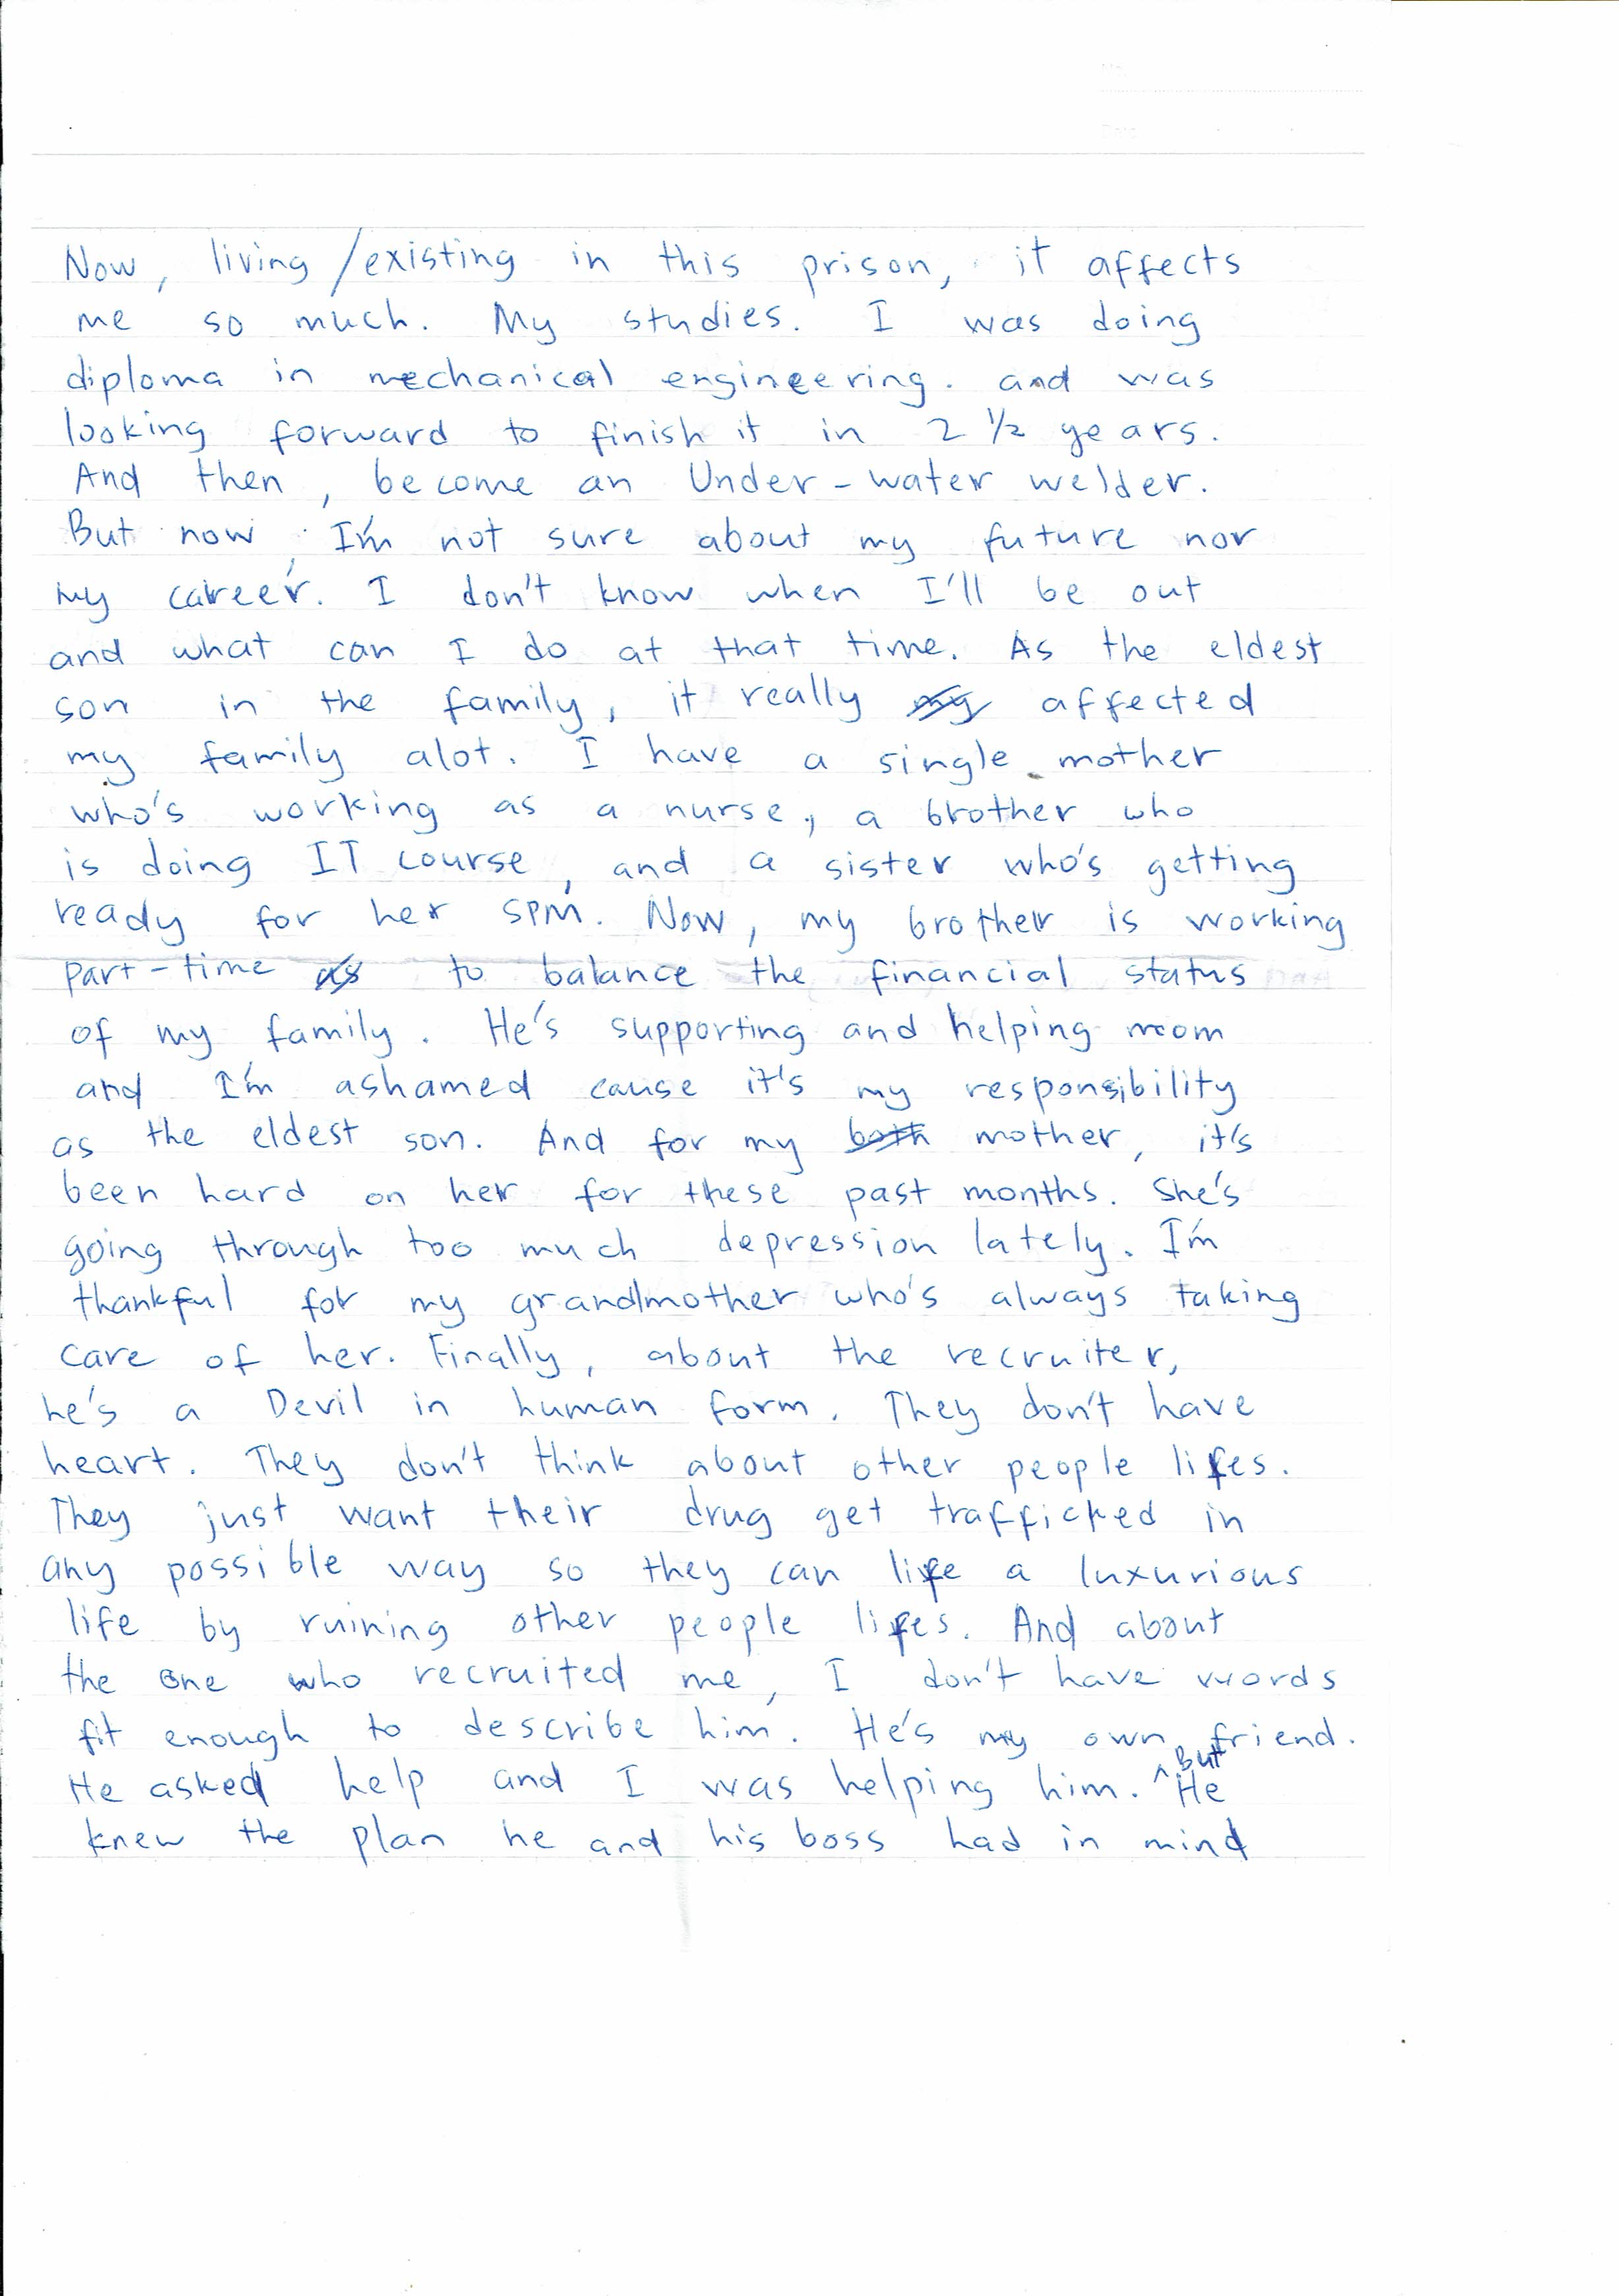 Now, living/existing in this prison, it affects
me so much. My studies. I was doing
diploma in mechanical engineering. and was
looking forward to finish it in 2 1/2 years.
And then, become an Under-water welder.
But now, I'm not sure about my future nor
my career. I don't know when I'll be out
and what can I do at that time. As the eldest
son in the family, it really my affected
my family alot. I have a single mother
who's working as a nurse, a brother who
is doing IT course, and a sister who's getting
ready for her SPM. Now, my brother is working
part-time as to balance the financial status
of my family. He's supporting and helping mom
and I'm ashamed cause it's my responsibility
as the eldest son. And for my both mother, it's
been hard on her for these past months. She's
going through too much depression lately. I'm
thankful for my grandmother who's always taking
care of her. Finally, about the recruiter,
he's a Devil in human form. They don't have
heart. They don't think about other people lifes.
They just want their drug get trafficked in
any possible way so they can life a luxurious
life by ruining other people lifes. And about
the one who recruited me, I don't have words
fit enough to describe him. He's my own friend.
He asked help and I was helping him. ^But He
knew the plan he and his boss had in mind